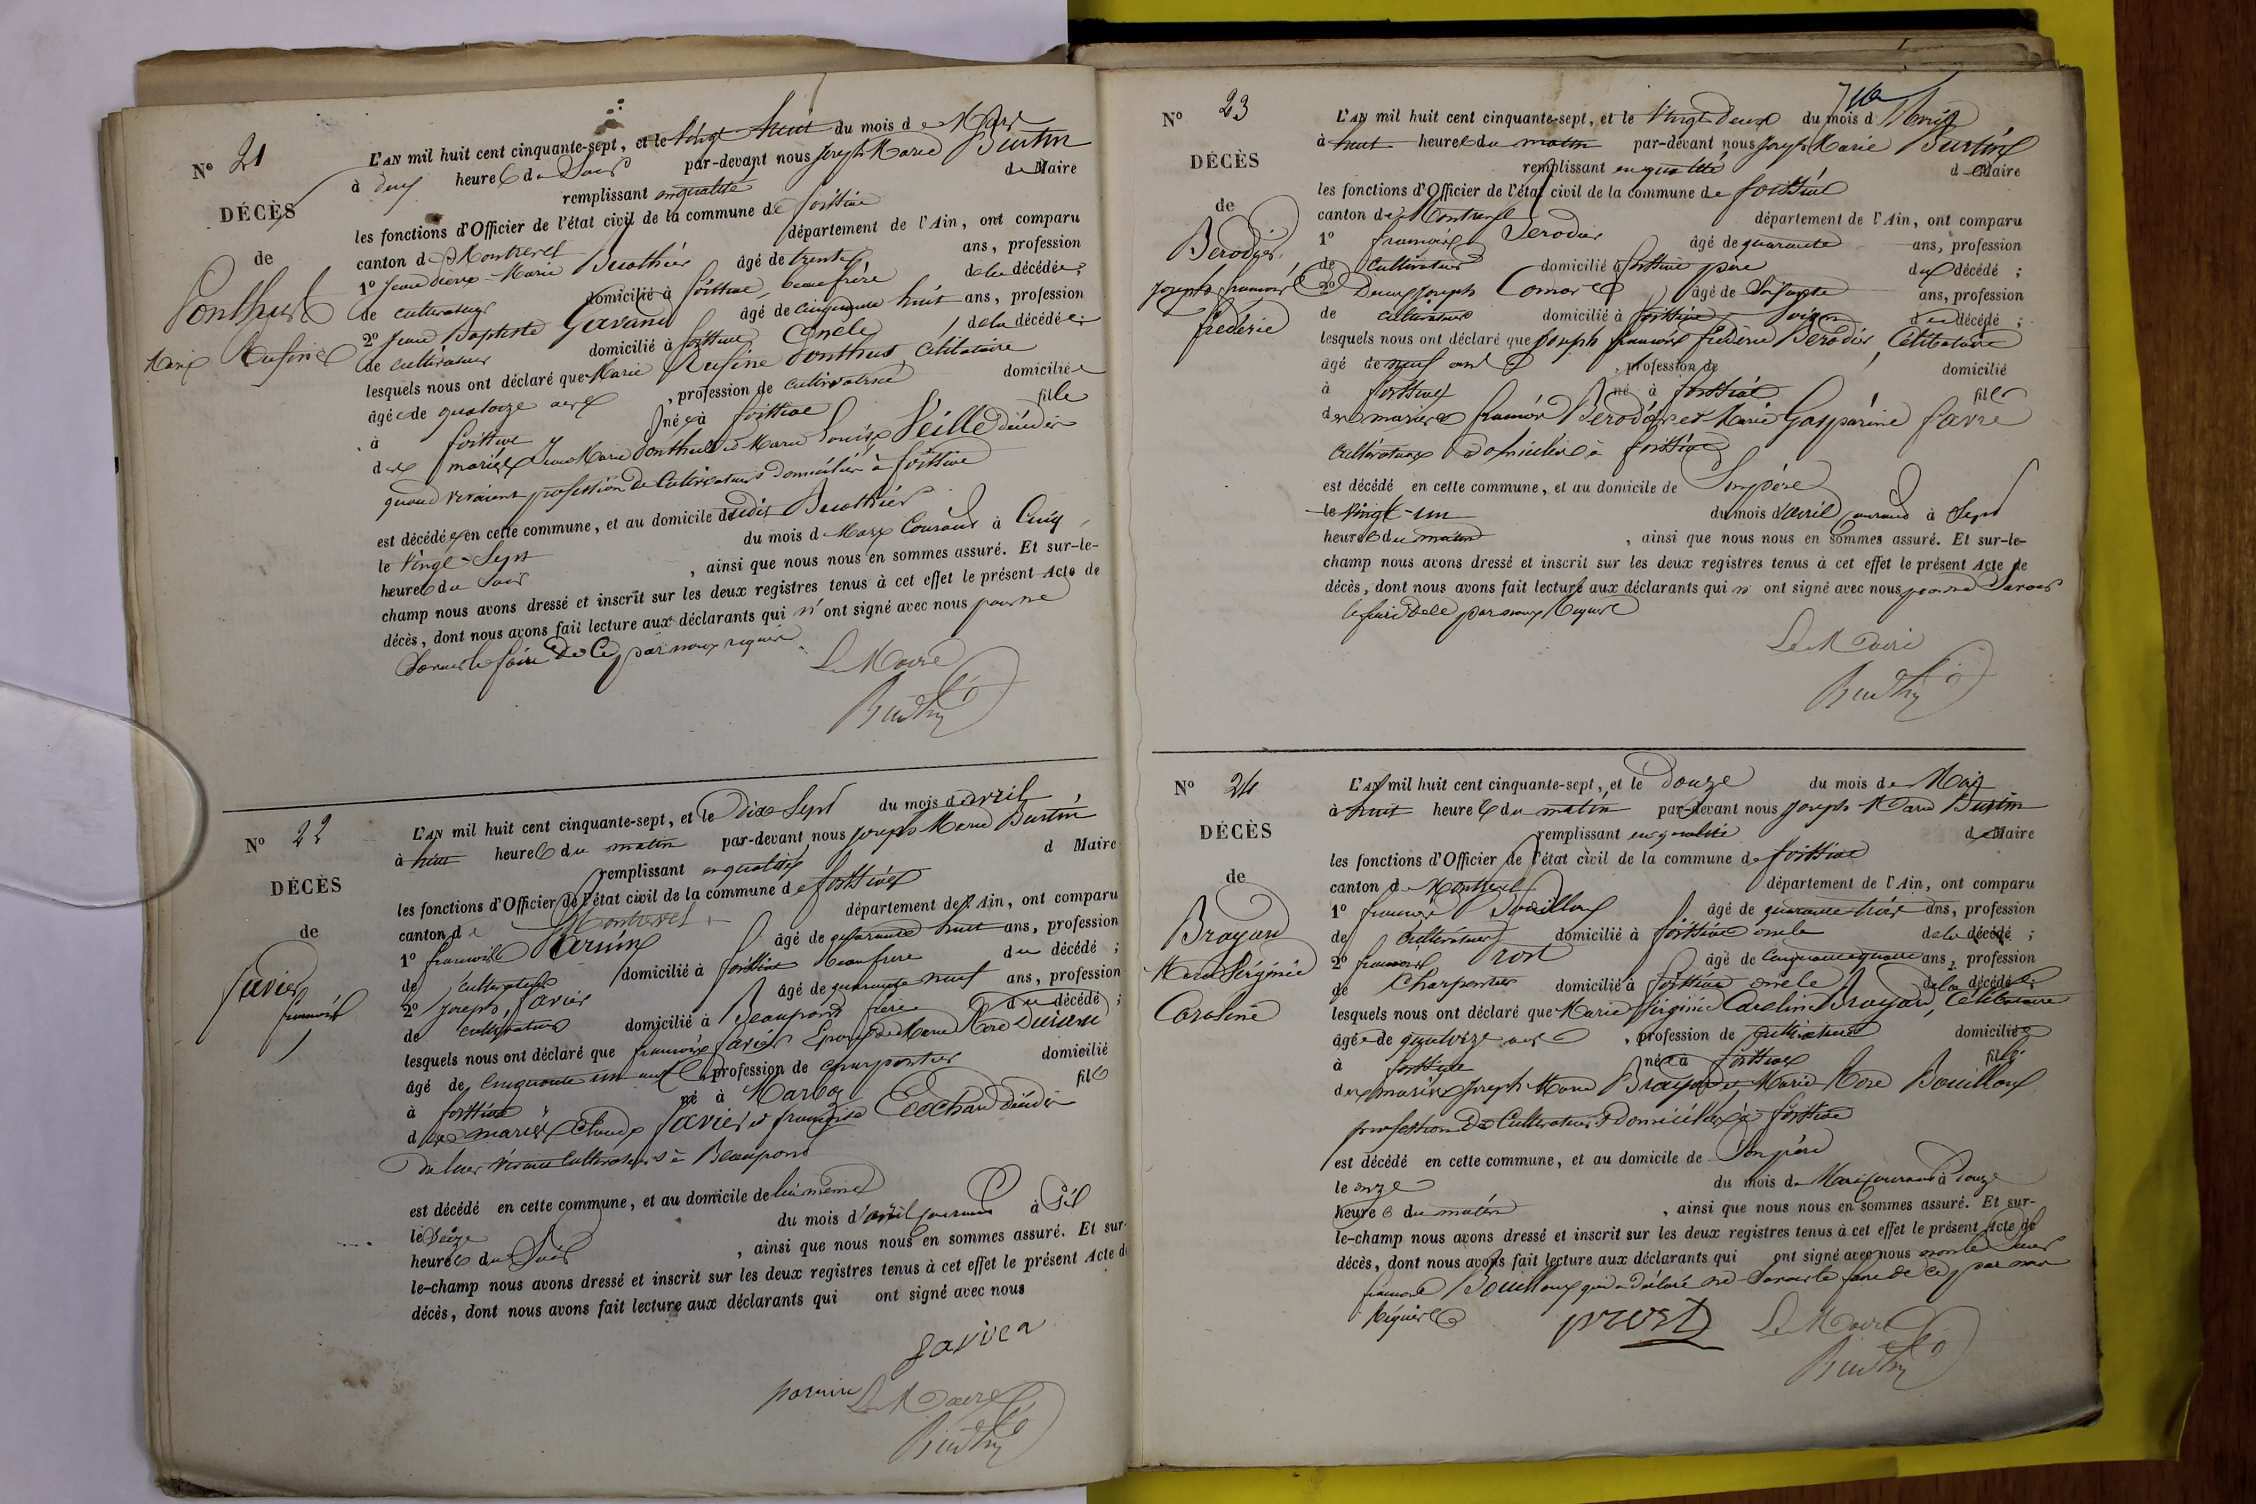 N° 21
DÉCÈS
de
Ponthus
Marie Rusine
L'AN mil huit cent cinquante-sept, et le vingt huit du mois de Mars
à deux heures du Soir par-devant nous Joseph Marie Burtin
remplissant en qualité de Maire
les fonctions d'Officier de l'état civil de la commune de foissiat
canton de Montrevel département de l'Ain, ont comparu
1° Jean Marie Bucothier âgé de trente ans, profession
de cultivateur domicilié à foissiat, beau frère de la décédée;
2° Jean Baptiste Gavand âgé de cinquante huit ans, profession
de cultivateur domicilié à foissiat Oncle de la décédée;
lesquels nous ont déclaré que Marie Rusine Ponthus, célibataire
âgée de quatorze ans, profession de cultivatrice domiciliée
à foissiat née à foissiat fille
des mariés Jean Marie Ponthus et Marie Louise Veille décédés
quand vivaient profession de Cultivateurs domiciliés à foissiat
est décédée en cette commune, et au domicile dudit Bucothier
le vingt-Sept du mois de Mars Courant à Cinq
heures du Soir, ainsi que nous nous en sommes assuré. Et sur-le-
champ nous avons dressé et inscrit sur les deux registres tenus à cet effet le présent Acte de
décès, dont nous avons fait lecture aux déclarants qui n'ont signé avec nous pour ne
Savoir le faire De Ce par nous requis
Le Maire
Burtin
N° 22
DÉCÈS
de
favier
francois
L'AN mil huit cent cinquante-sept, et le Dix Sept du mois d'avril
à huit heures du matin par-devant nous Joseph Marie Burtin
remplissant en qualité d Maire
les fonctions d'Officier de l'état civil de la commune de foissiat
canton de Montrevel département de l'Ain, ont comparu
1° francois Parnin âgé de quarante huit ans, profession
de cultivateur domicilié à foissiat beau frere du décédé;
2° Joseph favier âgé de quarante neuf ans, profession
de cultivateur domicilié à Beaupont frère du décédé;
lesquels nous ont déclaré que francois favier Epoux de Marie Rose
âgé de cinquante un ans, profession de charpentier domicilié
à foissiat né à Marboz fils
des mariés Claude favier et francoise Cochard décédés
Cultivateurs à Beaupont
est décédé en cette commune, et au domicile de lui même
le Seize du mois d'avril courant à Six
heures du Soir, ainsi que nous nous en sommes assuré. Et sur-
le-champ nous avons dressé et inscrit sur les deux registres tenus à cet effet le présent Acte de
décès, dont nous avons fait lecture aux déclarants qui ont signé avec nous
favier
parnin
Le Maire
Burtin
N° 23
DÉCÈS
de
Berodier
Joseph francois
frédéric
L'AN mil huit cent cinquante-sept, et le vingt Deux du mois d'avril
à huit heures du matin par-devant nous Joseph Marie Burtin
remplissant en qualité d Maire
les fonctions d'Officier de l'état civil de la commune de foissiat
canton de Montrevel département de l'Ain, ont comparu
1° francois Berodier âgé de quarante ans, profession
de cultivateur domicilié à foissiat père du décédé;
2° Denis Joseph Comas âgé de Soixante ans, profession
de cultivateur domicilié à foissiat voisin du décédé;
lesquels nous ont déclaré que Joseph francois frédéric Berodier, Célibataire
âgé de neuf ans, profession de domicilié
à foissiat né à foissiat fils
des mariés francois Berodier et Marie Gasparine favre
Cultivateurs domiciliés à foissiat
est décédé en cette commune, et au domicile de Son père
le vingt-un du mois d'avril courant à Sept
heures du matin, ainsi que nous nous en sommes assuré. Et sur-le-
champ nous avons dressé et inscrit sur les deux registres tenus à cet effet le présent Acte de
décès, dont nous avons fait lecture aux déclarants qui n'ont signé avec nous pour ne Savoir
le faire de ce par nous Requis
Le Maire
Burtin
N° 24
DÉCÈS
de
Brayard
Marie Virginie
Caroline
L'AN mil huit cent cinquante-sept, et le Douze du mois de Mai
à huit heures du matin par-devant nous Joseph Marie Burtin
remplissant en qualité de Maire
les fonctions d'Officier de l'état civil de la commune de foissiat
canton de Montrevel département de l'Ain, ont comparu
1° francois Bouilloux âgé de quarante trois ans, profession
de cultivateur domicilié à foissiat oncle de la décédé;
2° francois Prost âgé de cinquante quatre ans, profession
de Charpentier domicilié à foissiat oncle de la décédée;
lesquels nous ont déclaré que Marie Virginie Caroline Brayard, Célibataire
âgée de quatorze ans, profession de cultivatrice domiciliée
à foissiat née à foissiat fille
des mariés Joseph Marie Brayard et Marie Rose Bouilloux
profession De Cultivateurs domiciliés à foissiat
est décédé en cette commune, et au domicile de Son père
le onze du mois de Mai courant à onze
heures du matin, ainsi que nous nous en sommes assuré. Et sur-
le-champ nous avons dressé et inscrit sur les deux registres tenus à cet effet le présent Acte de
décès, dont nous avons fait lecture aux déclarants qui ont signé avec nous
francois Bouilloux qui a déclaré ne Savoir le faire de ce par nous
Requis
prost
Le Maire
Burtin